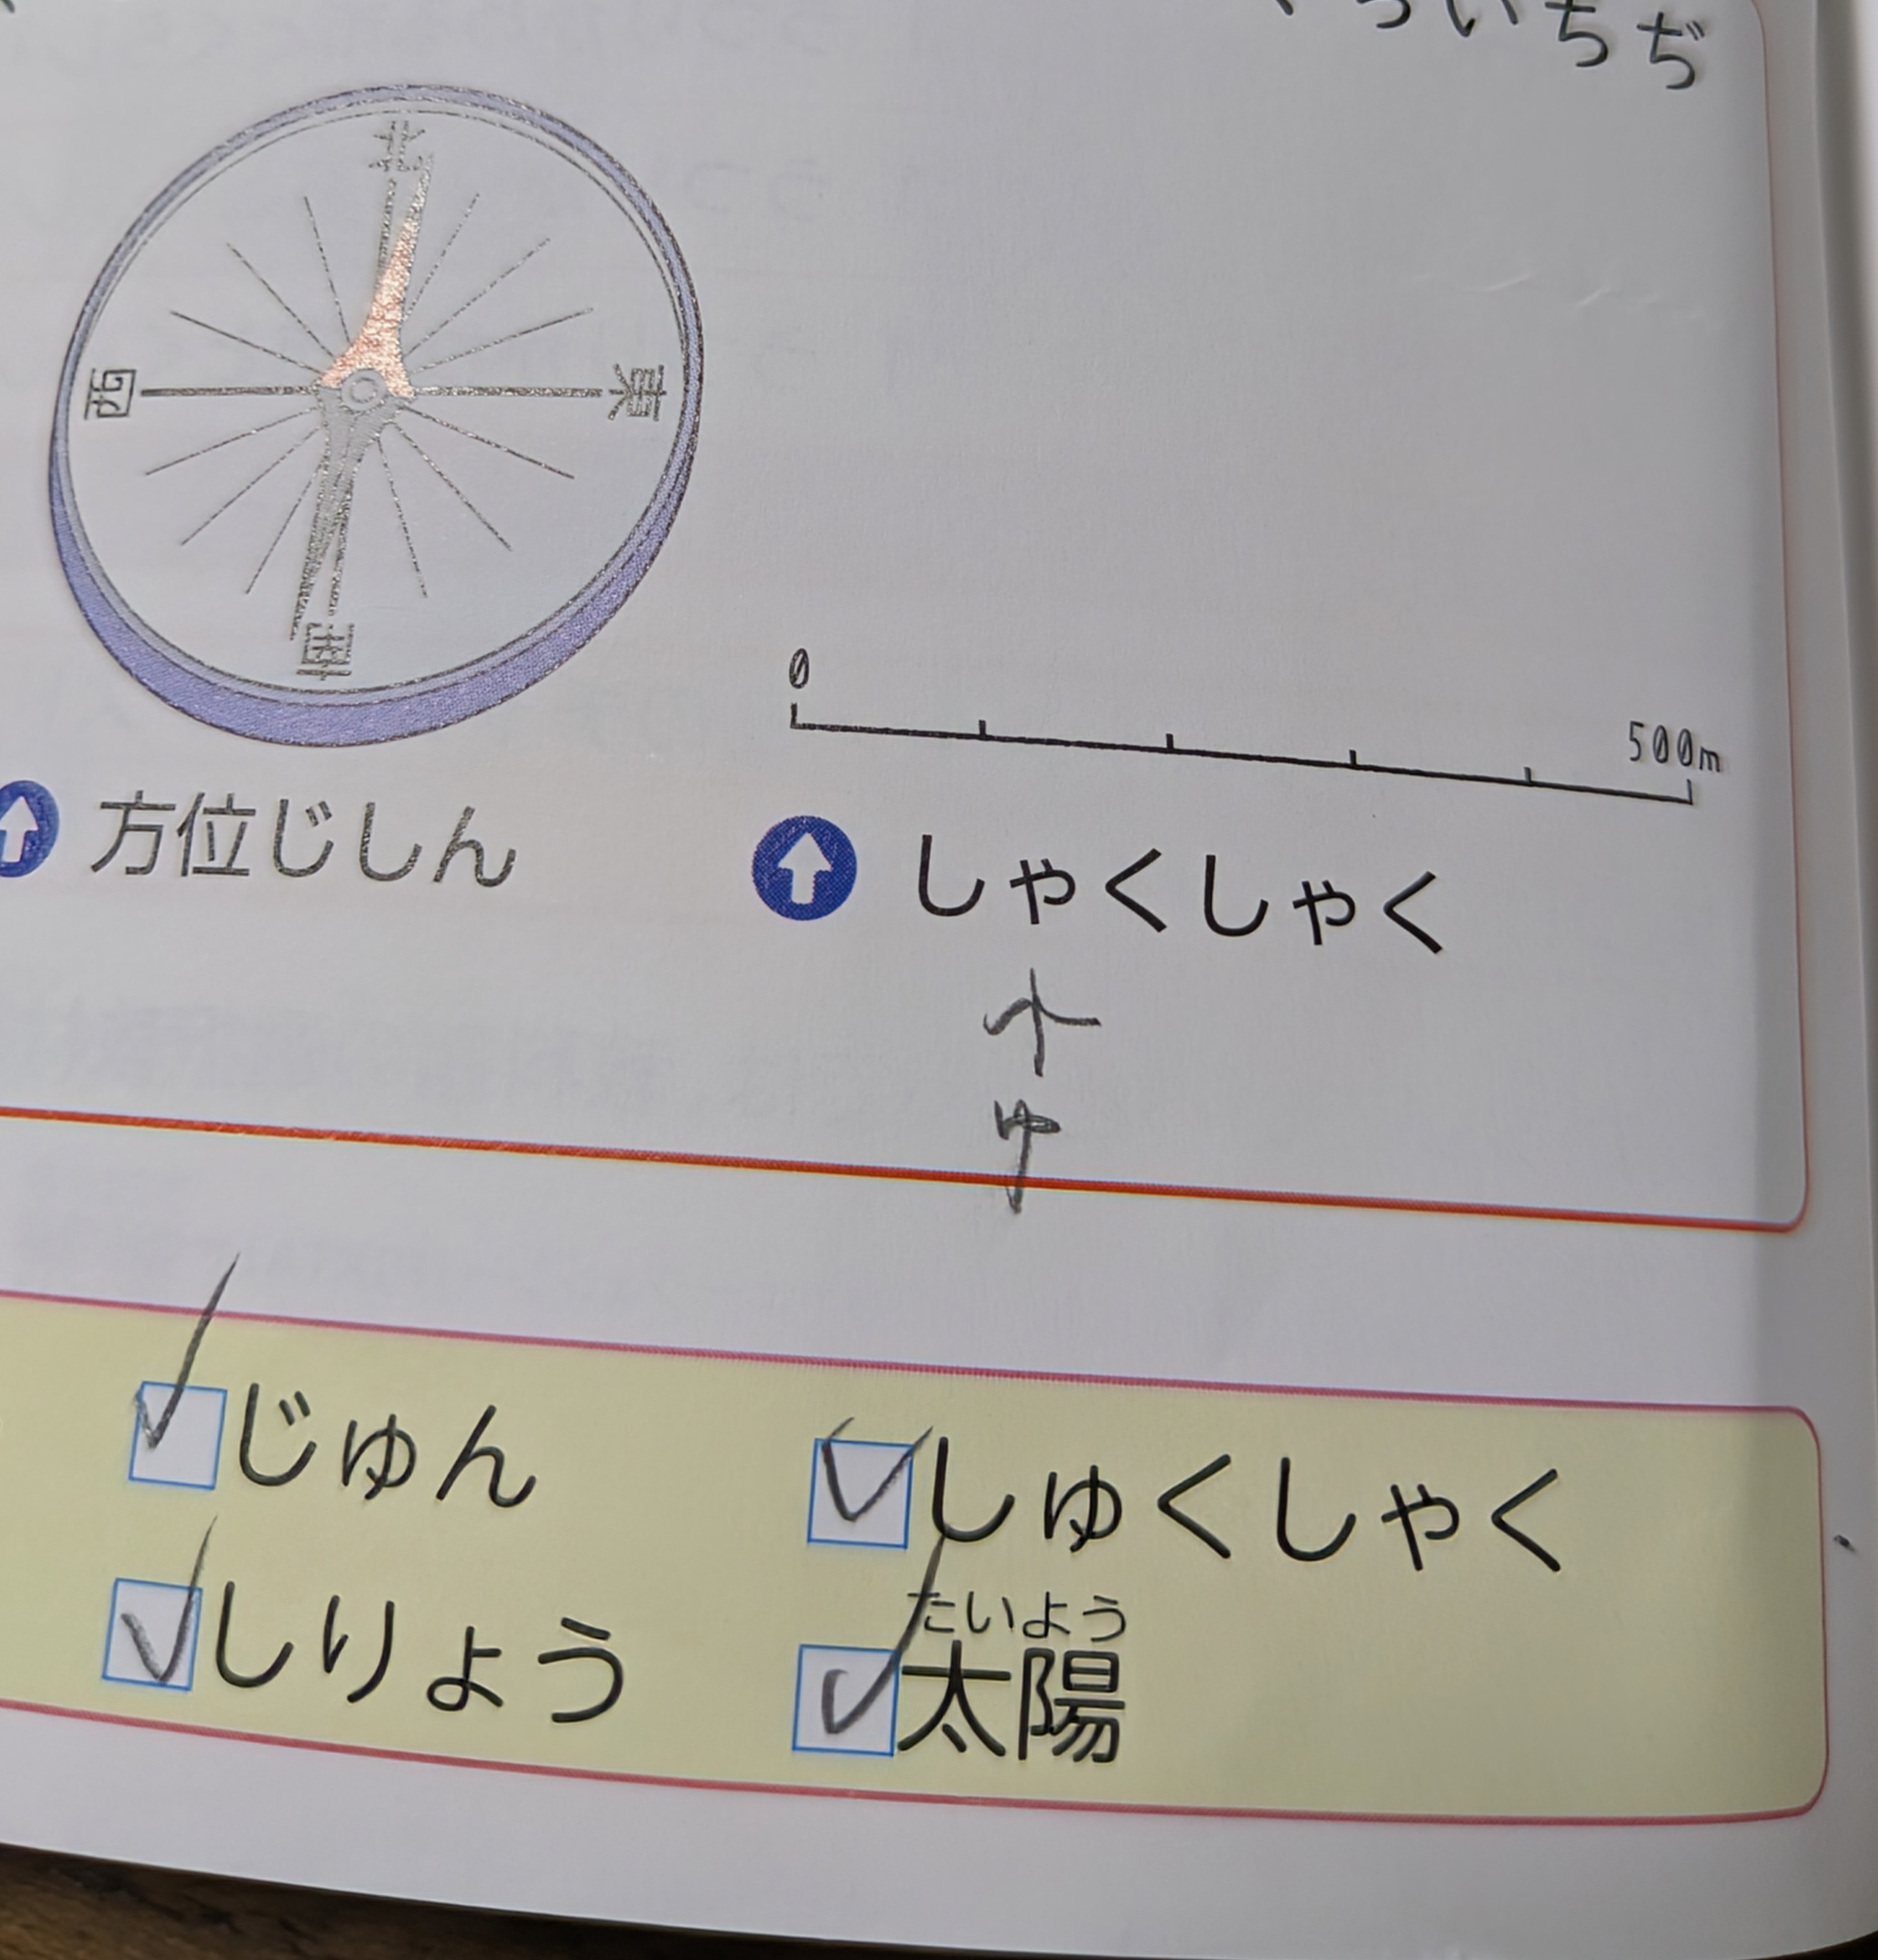 いちぢ
北
西
東
南
0
500m
方位じしん
しゃくしゃく
ゆ
じゅん
しゅくしゃく
しりょう
たいよう
太陽